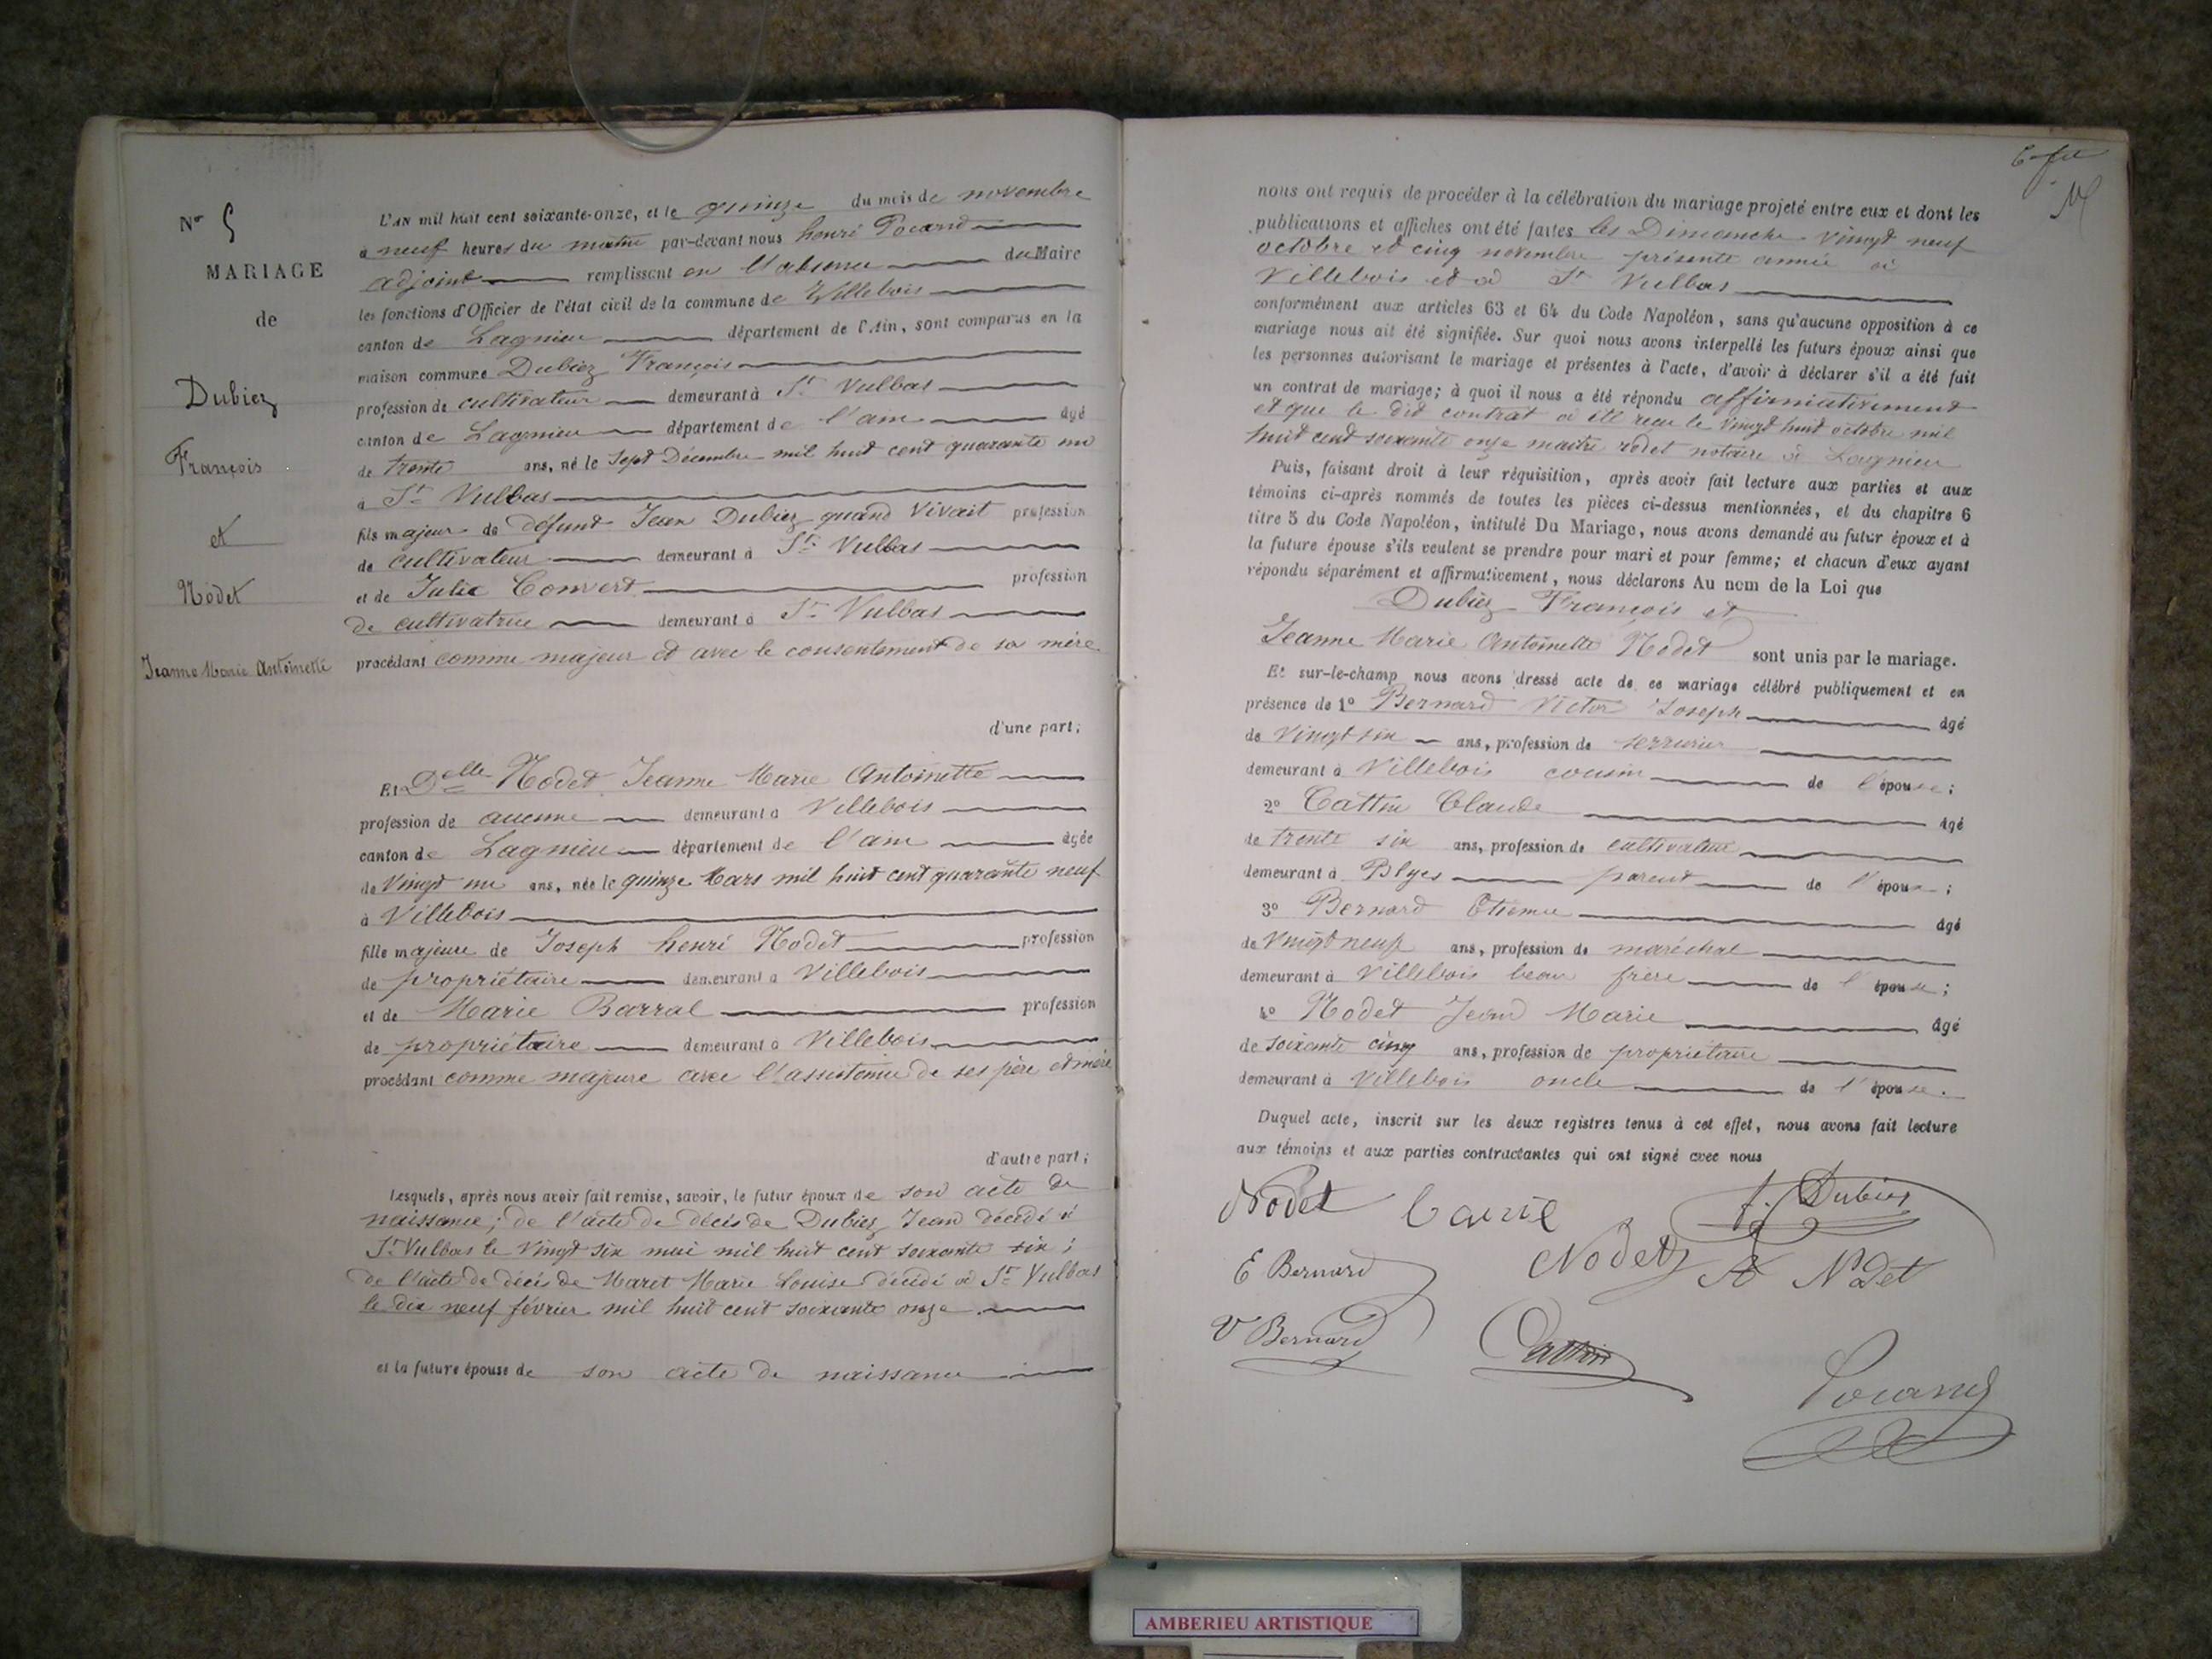 N° 5
MARIAGE
de
Dubiez
François
et
Nodet
Jeanne Marie Antoinette
L'AN mil huit cent soixante-onze, et le quinze du mois de novembre
à neuf heures du matin par-devant nous henri Pocard
adjoint remplissant en l'absence du Maire
les fonctions d'Officier de l'état civil de la commune de Villebois
canton de Lagnieu département de l'Ain, sont comparus en la
maison commune Dubiez François
profession de cultivateur demeurant à St Vulbas
canton de Lagnieu département de l'ain âgé
de trente ans, né le Sept Décembre mil huit cent quarante un
à St Vulbas
fils majeur de défunt Jean Dubiez quand Vivait profession
de cultivateur demeurant à St Vulbas
et de Julie Convert profession
de cultivatrice demeurant à St Vulbas
procédant comme majeur et avec le consentement de sa mère
d'une part;
Et Delle Nodet Jeanne Marie Antoinette
profession de aucune demeurant à Villebois
canton de Lagnieu département de l'ain âgée
de Vingt un ans, née le quinze Mars mil huit cent quarante neuf
à Villebois
fille majeure de Joseph henri Nodet profession
de propriétaire demeurant à Villebois
et de Marie Barral profession
de propriétaire demeurant à Villebois
procédant comme majeure avec l'assistance de ses père et mère
d'autre part;
Lesquels, après nous avoir fait remise, savoir, le futur époux de son acte de
naissance; de l'acte de décès de Dubiez Jean décédé à
St Vulbas le Vingt six mai mil huit cent soixante six;
de l'acte de décès de Maret Marie Louise décédé à St Vulbas
le dix neuf février mil huit cent soixante onze
et la future épouse de son acte de naissance
nous ont requis de procéder à la célébration du mariage projeté entre eux et dont les
publications et affiches ont été faites les Dimanche Vingt neuf
octobre et cinq novembre présente année à
Villebois et à St Vulbas
conformément aux articles 63 et 64 du Code Napoléon, sans qu'aucune opposition à ce
mariage nous ait été signifiée. Sur quoi nous avons interpellé les futurs époux ainsi que
les personnes autorisant le mariage et présentes à l'acte, d'avoir à déclarer s'il a été fait
un contrat de mariage; à quoi il nous a été répondu affirmativement
et que le dit contrat a été recu le Vingt huit octobre mil
huit cent soixante onze maitre rodet notaire à Lagnieu
Puis, faisant droit à leur réquisition, après avoir fait lecture aux parties et aux
témoins ci-après nommés de toutes les pièces ci-dessus mentionnées, et du chapitre 6
titre 5 du Code Napoléon, intitulé Du Mariage, nous avons demandé au futur époux et à
la future épouse s'ils veulent se prendre pour mari et pour femme; et chacun d'eux ayant
répondu séparément et affirmativement, nous déclarons Au nom de la Loi que
Dubiez François et
Jeanne Marie Antoinette Nodet sont unis par le mariage.
Et sur-le-champ nous avons dressé acte de ce mariage célébré publiquement et en
présence de 1° Bernard Victor Joseph âgé
de Vingt six ans, profession de serrurier
demeurant à Villebois cousin de l'épouse;
2° Cattin Claude âgé
de trente six ans, profession de cultivateur
demeurant à Blyes parent de l'épouse;
3° Bernard Etienne âgé
de Vingt neuf ans, profession de maréchal
demeurant à Villebois beau frère de l'épouse;
4° Nodet Jean Marie âgé
de soixante cinq ans, profession de propriétaire
demeurant à Villebois oncle de l'épouse.
Duquel acte, inscrit sur les deux registres tenus à cet effet, nous avons fait lecture
aux témoins et aux parties contractantes qui ont signé avec nous
Nodet f. Dubiez
E Bernard Nodet A Nodet
V Bernard Cattin
Pocard
AMBERIEU ARTISTIQUE